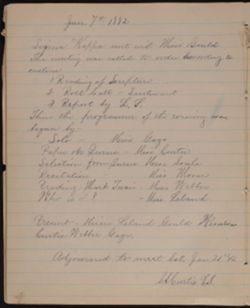 Jan 7th 1882
Sigma Kappa met with Miss Gould
The meeting was called to order according to
custom
1 Reading of Scripture
2 Roll Call - Sentiment
3 Report by L. S.
Then the programme of the evening was
begun by
Solo - Miss Gage
Paper on Dickens - Miss Curtis
Selection from Dickens Miss Soule
Recitation - Miss
Reading Mark Twain - Miss Webber
Who is it? - Miss Leland
Present - Misses Leland Gould
Curtis Webber Gage.
Adjourned to meet Sat. Jan 21st '82
Curtis